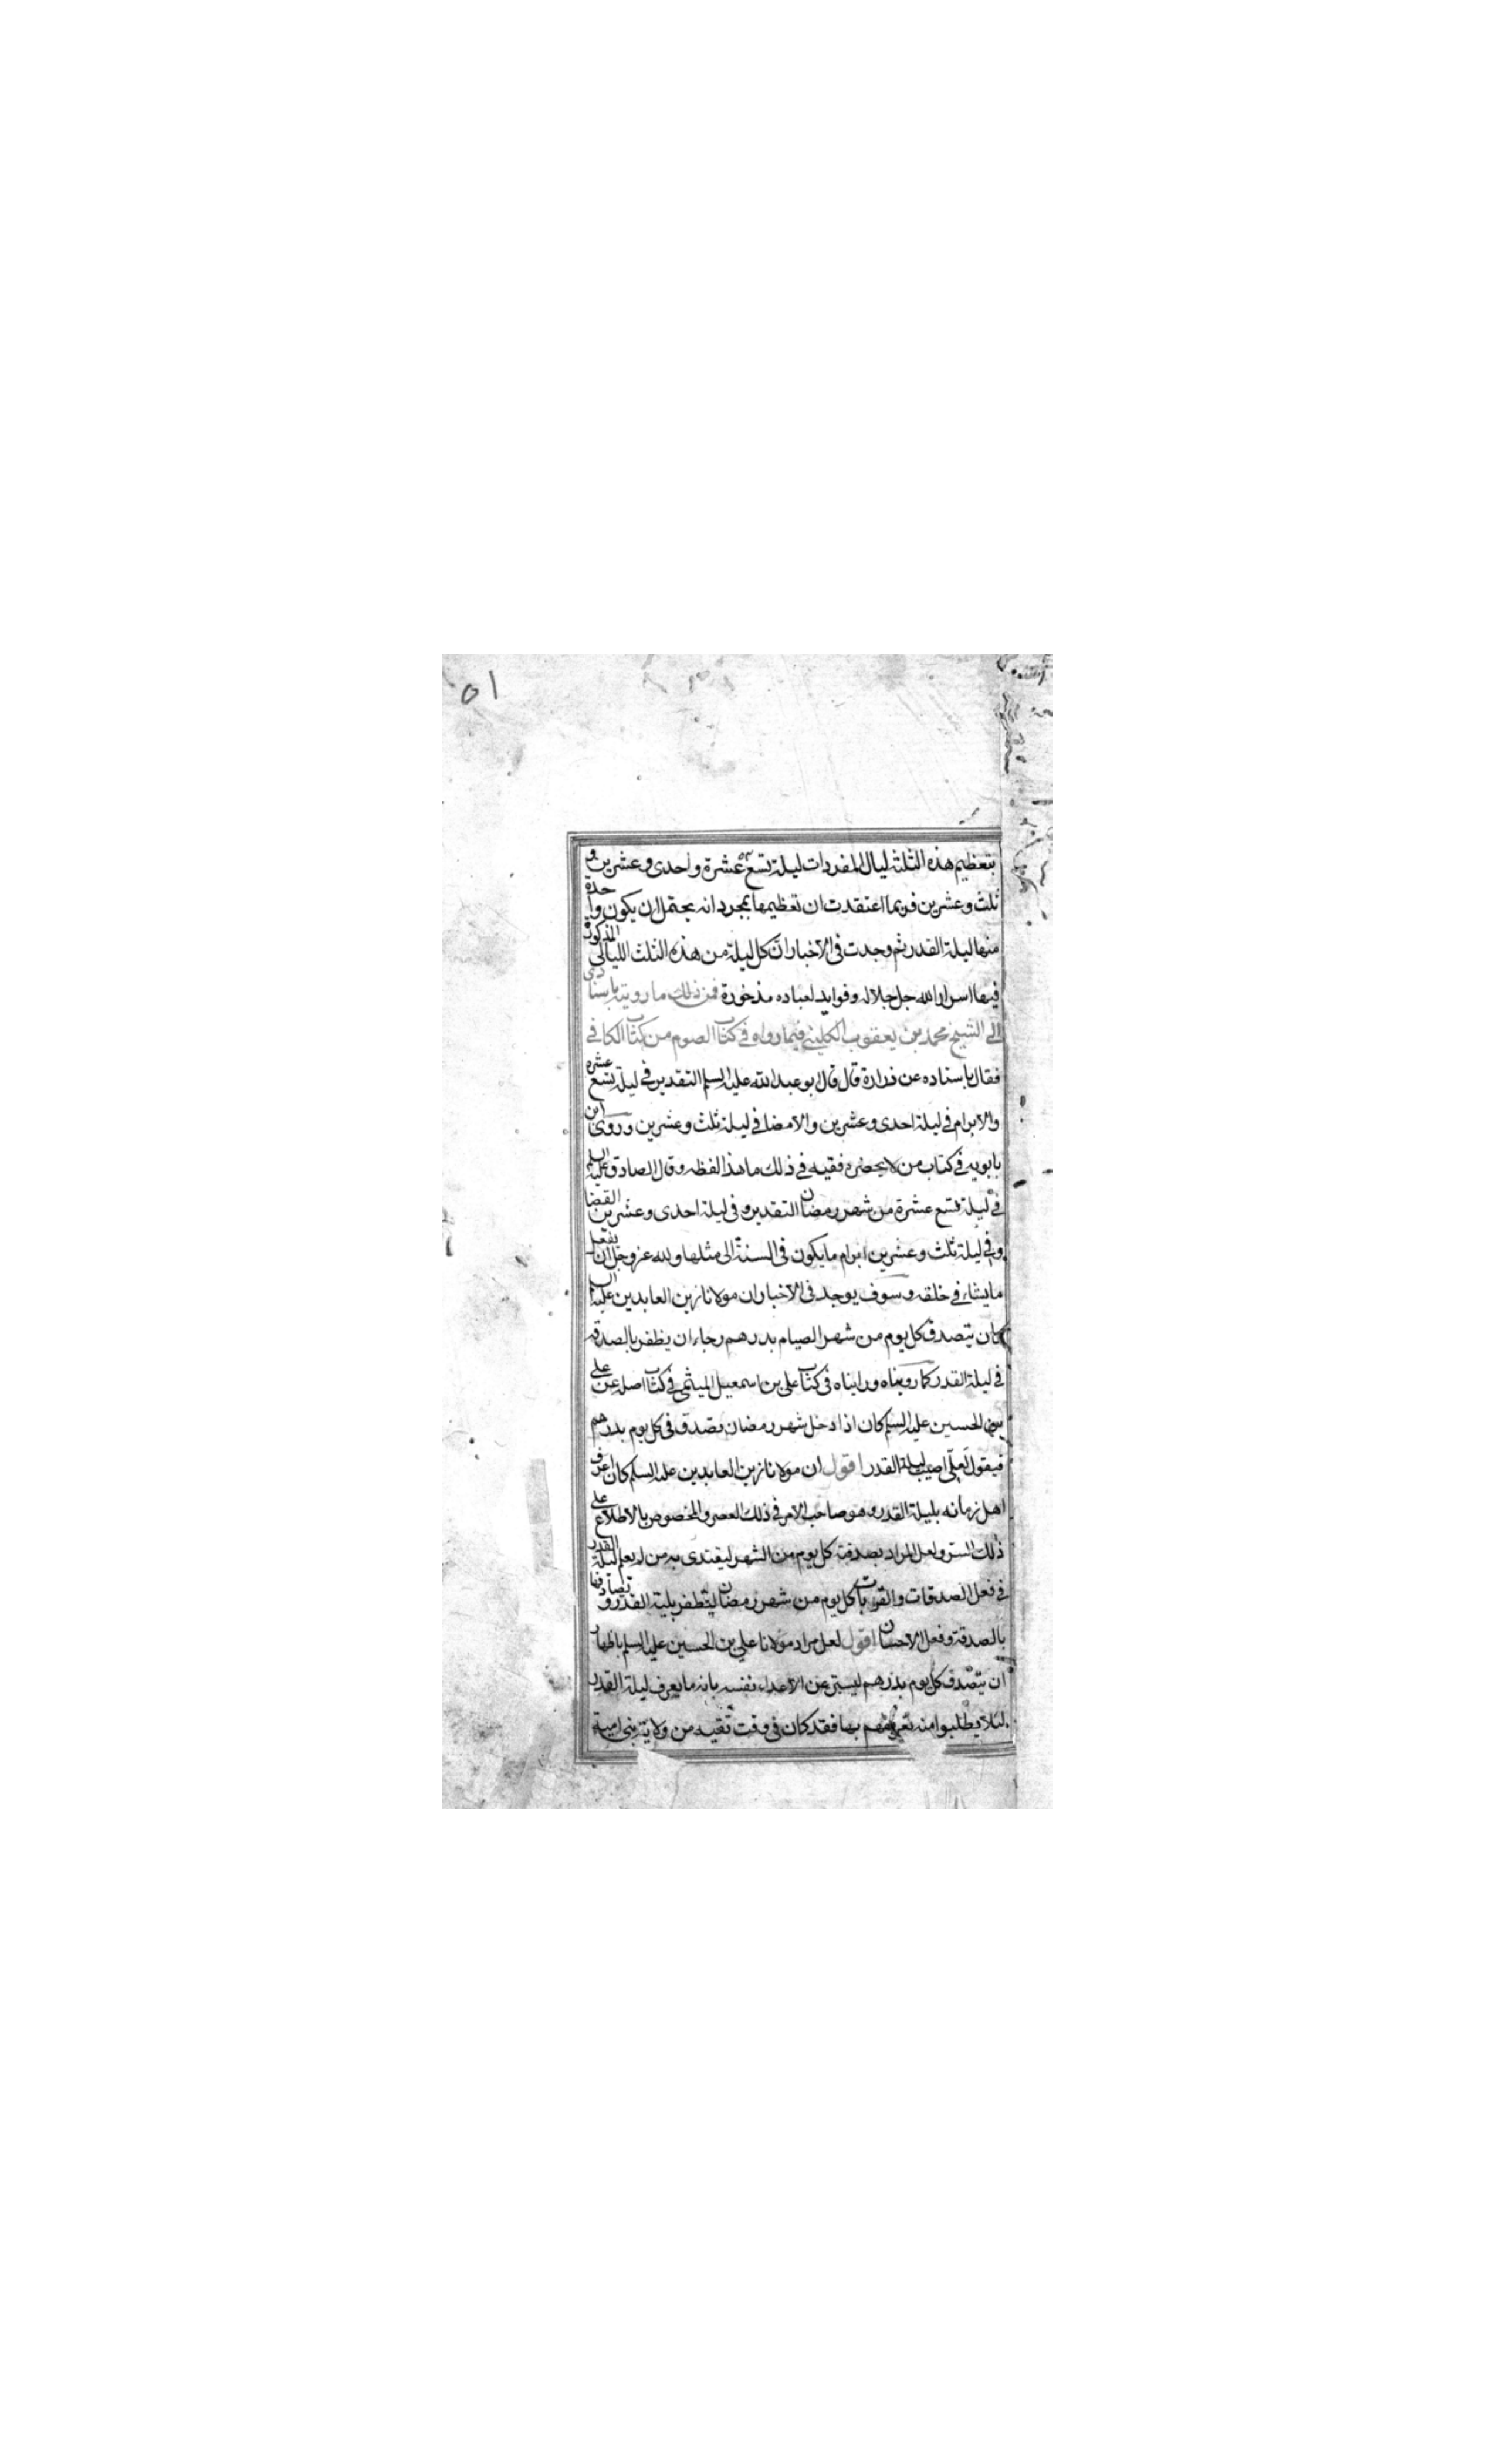 ٥١
بتعظيم هذه الثلثه ليال المفردات ليلة تسع عشرة واحدى وعشرين و
ثلث وعشرين فربما اعتقدت ان تعظيمها بمجرد انه يحتمل ان يكون واحدة
منها ليلة القدر ثم وجدت فى الاخبار ان كل ليلة من هذه الثلث الليالى المذكورة
فيها اسرار الله جل جلاله وفوايد لعباده مذخورة فمن ذلك ما رويته باسنادى
الى الشيخ محمد بن يعقوب الكلينى فيما رواه فى كتاب الصوم من كتاب الكافى
فقال باسناده عن زرارة قال قال ابو عبد الله عليه السلم التقدير فى ليلة تسع عشره
والابرام فى ليلة احدى وعشرين والامضا فى ليلة ثلث وعشرين وروى ابن
بابويه فى كتاب من لا يحضره فقيه فى ذلك ما هذا لفظه وقال الصادق عليه الس
فى ليلة تسع عشرة من شهر رمضان التقدير وفى ليلة احدى وعشرين القضا
وفى ليلة ثلث وعشرين ابرام ما يكون فى السنة الى مثلها ولله عز وجل ان يفعل
ما يشاء فى خلقه وسوف يوجد فى الاخبار ان مولانا زين العابدين عليه الس
كان يتصدق كل يوم من شهر الصيام بدرهم رجاء ان يظفر بالصدقه
فى ليلة القدر كما رويناه ورايناه فى كتاب على بن اسمعيل الميثمى فى كتاب اصله عن على
بن الحسين عليه السلم كان اذا دخل شهر رمضان تصدق فى كل يوم بدرهم
فيقول لعلى اصيب ليلة القدر اقول ان مولانا زين العابدين عليه السلم كان اعرف
اهل زمانه بليلة القدر وهو صاحب الامر فى ذلك العصر والمخصوص بالاطلاع على
ذلك السر ولعل المراد بصدقة كل يوم من الشهر ليقتدى به من لم يعلم ليلة القدر
فى فعل الصدقات والقربات كل يوم من شهر رمضان ليظفر بليلة القدر و تصادفها
بالصدقة وفعل الاحسان اقول لعل مراد مولانا على بن الحسين عليه السلم باظهار
ان يتصدق كل يوم بدرهم ليستر عن الاعداء نفسه بانه ما يعرف ليلة القدر
لئلا يطلبوا منه تعريفهم بها فقد كان فى وقت تقيه من ولاية بنى امية